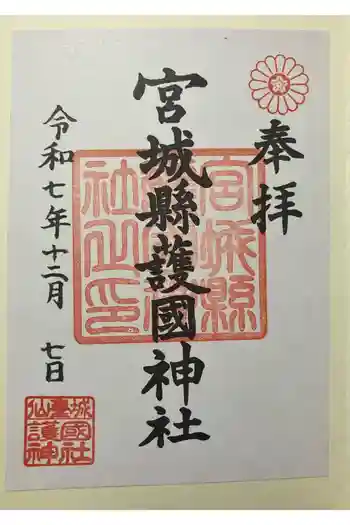 奉拝
宮城縣護國神社
令和七年十二月 七日
宮城縣護國神社之印
仙臺城
護國神社